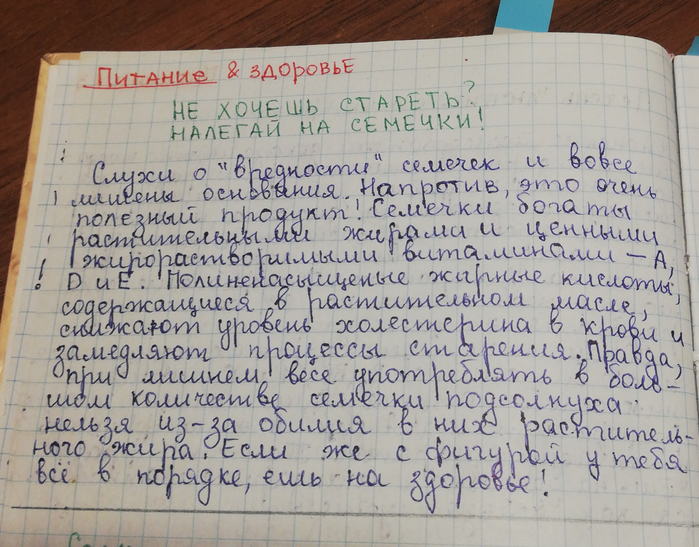 Питание & здоровье
НЕ ХОЧЕШЬ СТАРЕТЬ?
НАЛЕГАЙ НА СЕМЕЧКИ!
Слухи о "вредности" семечек и вовсе
лишены основания. Напротив, это очень
полезный продукт! Семечки богаты
растительными жирами и ценными
жирорастворимыми витаминами – А,
D и Е. Полиненасыщеные жирные кислоты,
содержащиеся в растительном масле,
снижают уровень холестерина в крови и
замедляют процессы старения. Правда,
при лишнем весе употреблять в боль-
шом количестве семечки подсолнуха
нельзя из-за обилия в них раститель-
ного жира. Если же с фигурой у тебя
всё в порядке, ешь на здоровье!